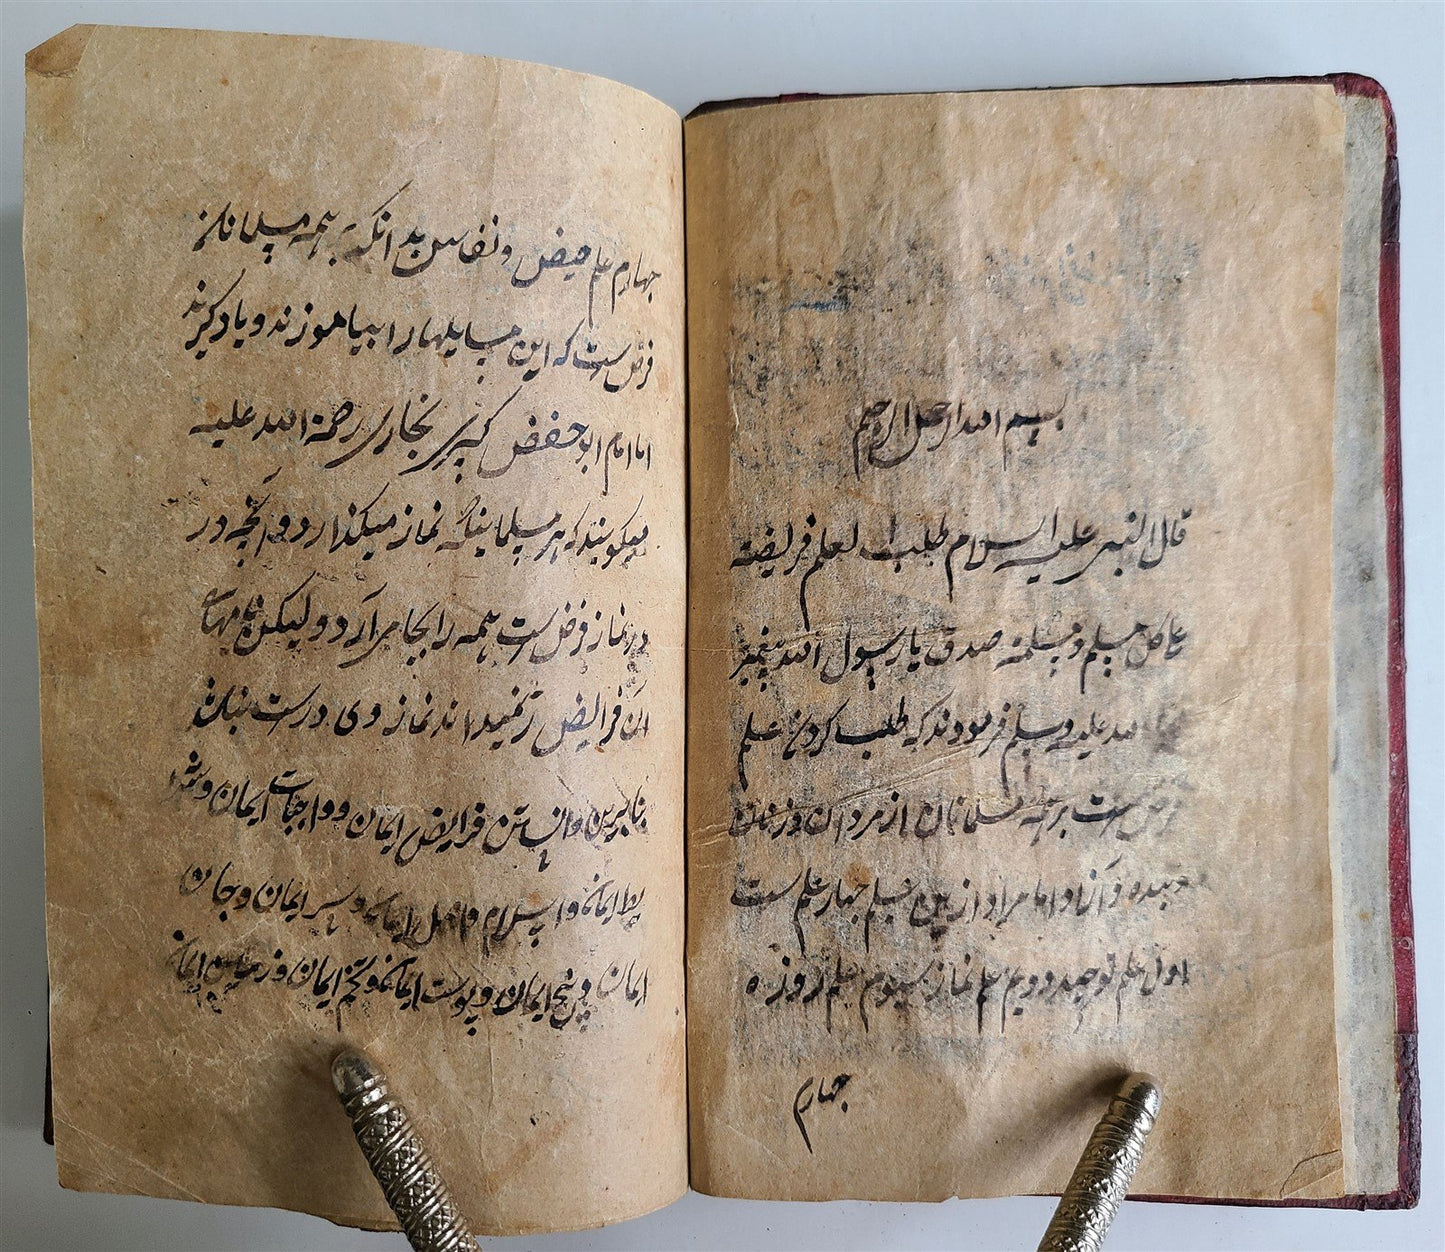 بسم الله الرحمن الرحیم
قال النبی علیه السلام طلب العلم فریضة
علی کل مسلم و مسلمة صدق یا رسول الله پیغمبر
الله علیه وسلم فرمودند که طلب کردن علم
فرض است بر همه مسلمانان از مردان و زنان
و بنده و آزاد اما مراد از این علم چهار علم ست
اول علم توحید دویم علم نماز سیوم علم روزه
چهارم
چهارم علم حیض و نفاس بدانکه بهمه مسلمانان
فرض ست که این مسایلها را بیاموزند و یاد گیرند
اما امام ابو حفض کبیر بخاری رحمة الله علیه
میگویند که هر مسلمانیکه نماز میگذارد و آنچه در
در نماز فرض ست همه را بجا می آرد ولیکن
این فرایض را نمیداند نماز وی درست نباشد
بنابرین دانستن فرایض ایمان و واجبات ایمان و
شرط ایمان و اسلام و اصل ایمان و سر ایمان و جان
ایمان و بیخ ایمان و پوست ایمان و تخم ایمان و